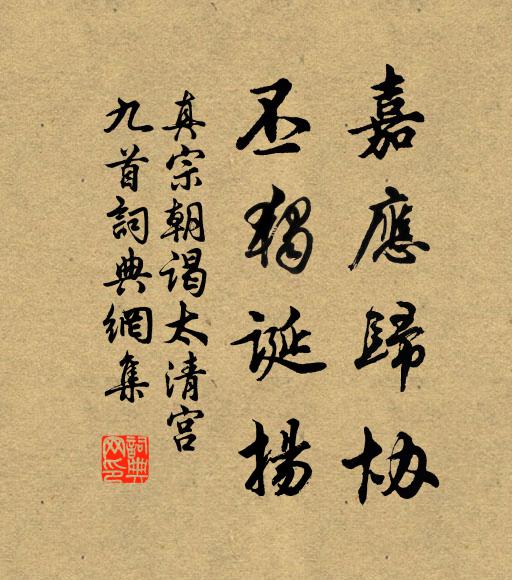 嘉應歸協
丕猷誕揚
真宗朝謁太清宮
九首詞典網集
詞典
网印